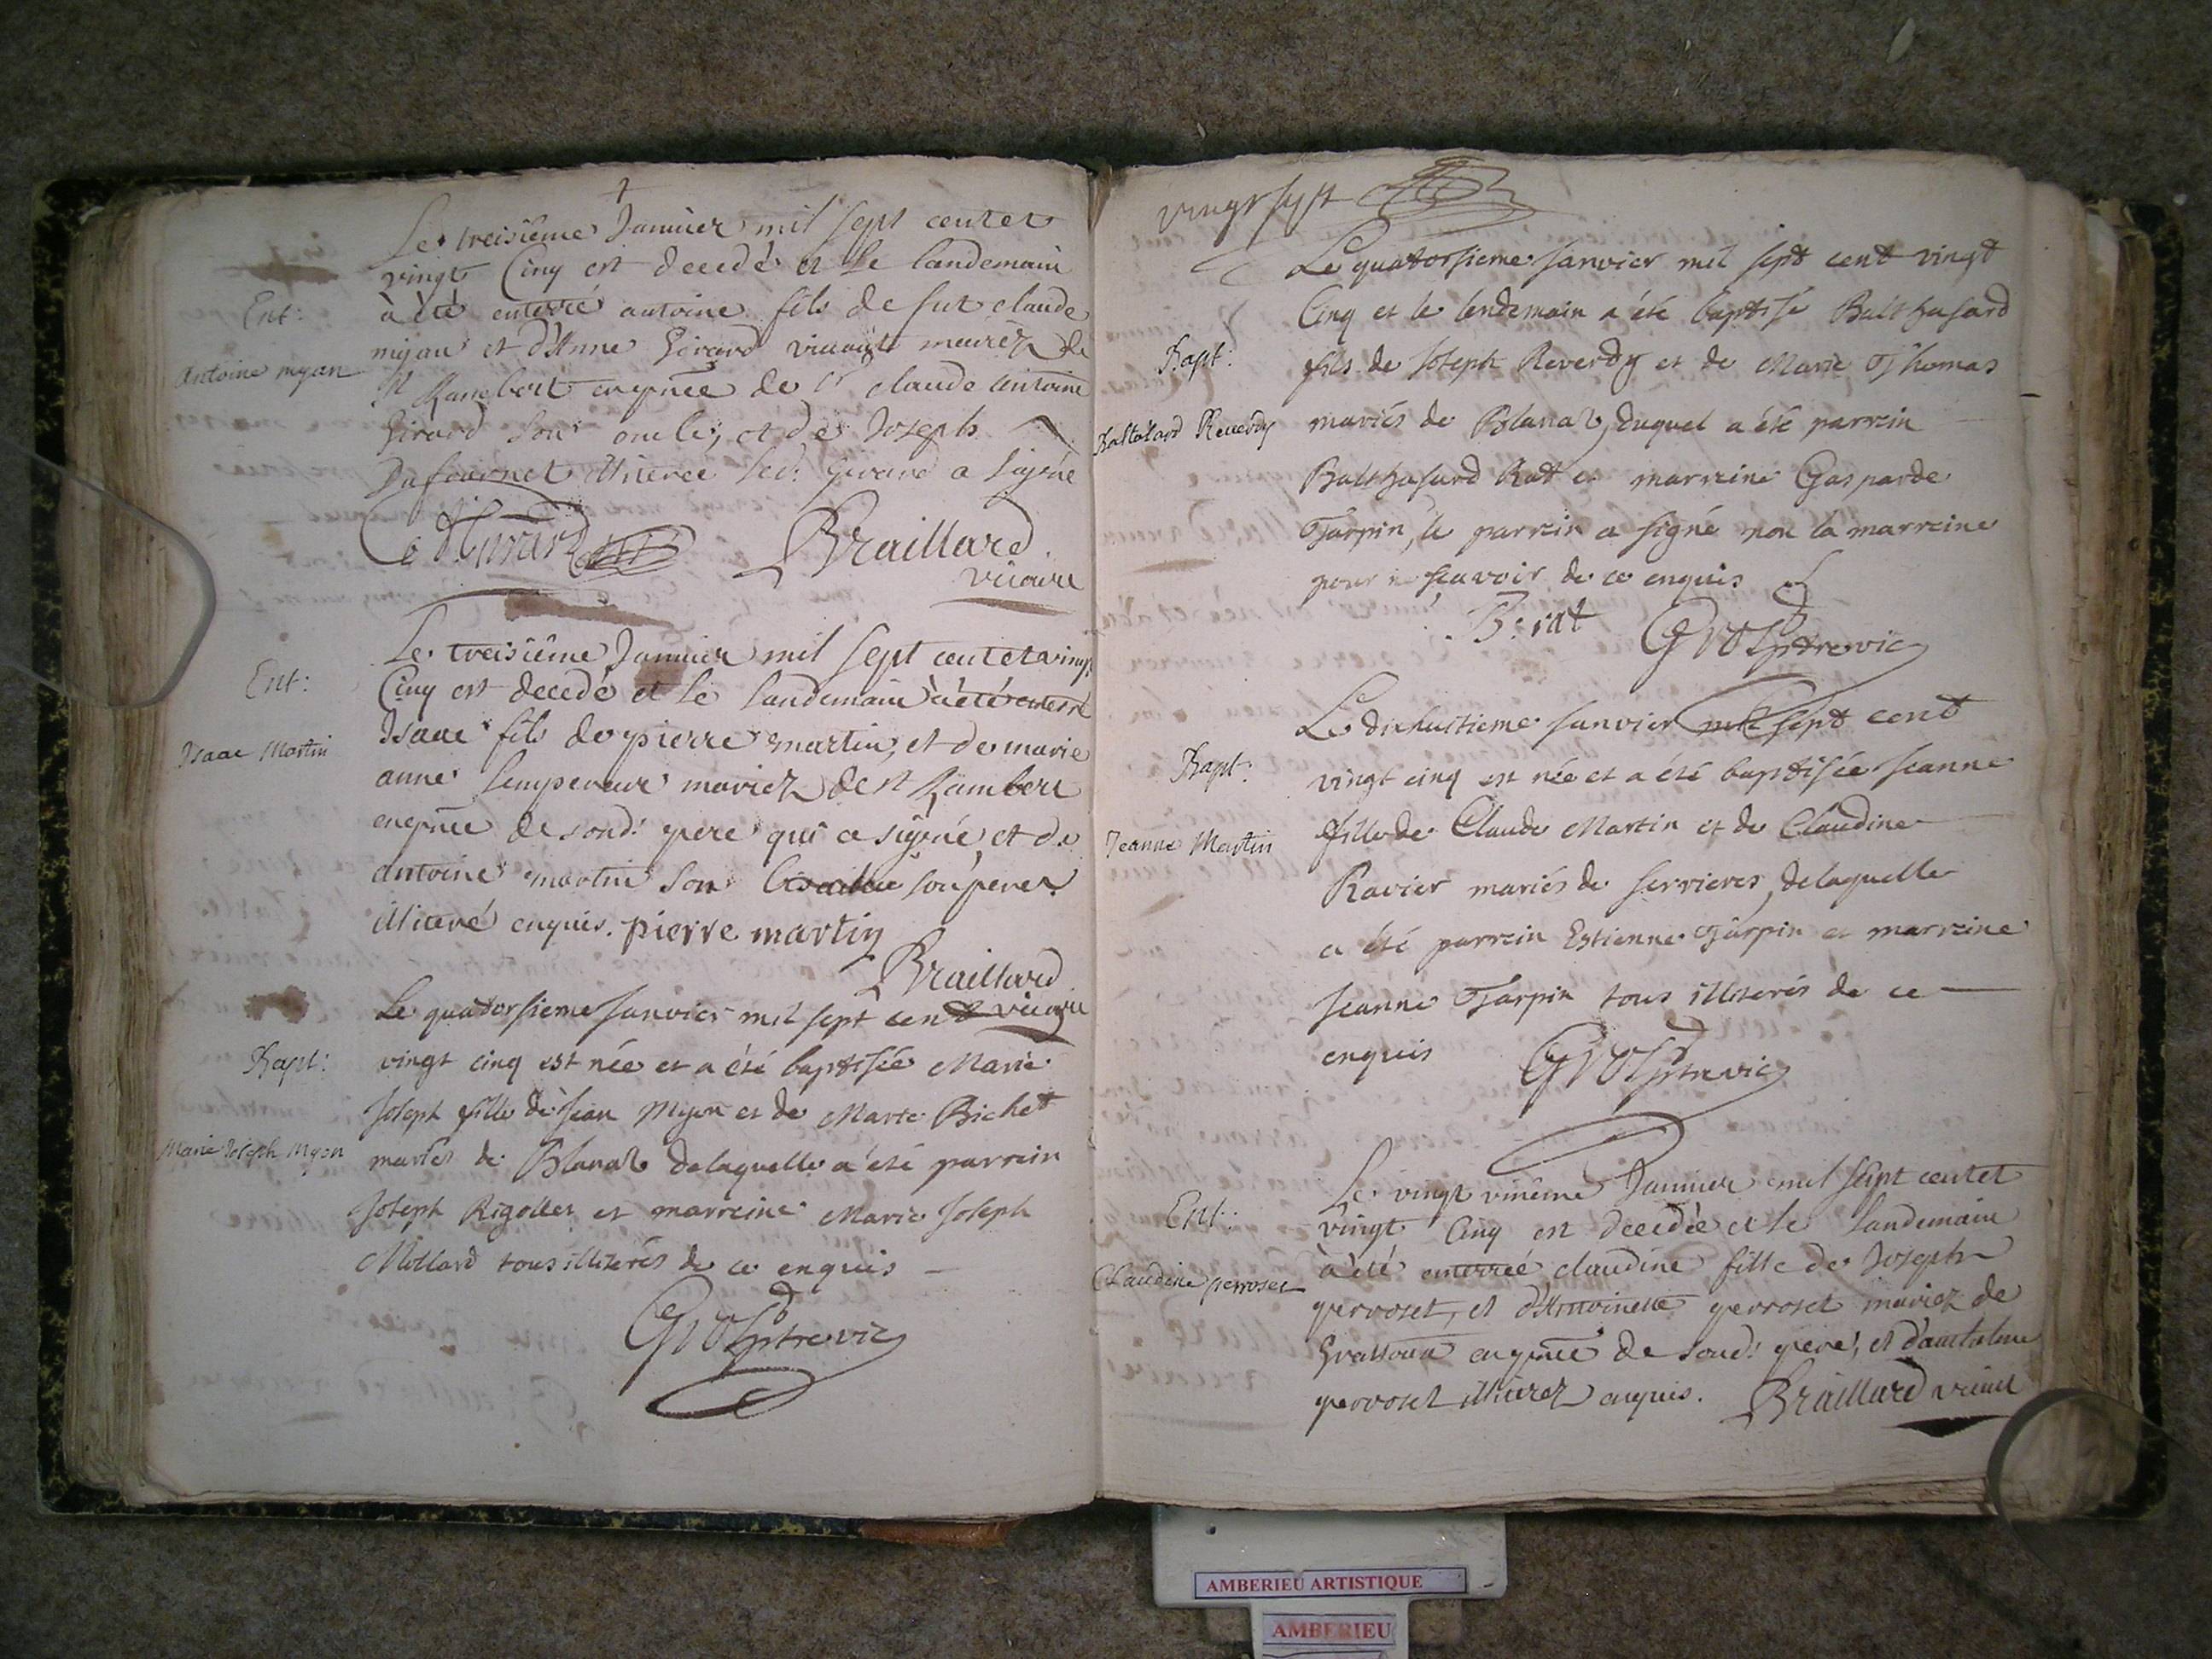 Le treisième Janvier mil sept centet
vingt Cinq est decedé et le landemain
Ent:
à été enterré antoine fils de fut claude
Antoine myan
mijan et d'Anne Girard vivants mariéz de
St Rambert en pnce de Sr claude antoine
Girard son oncle, et de Joseph
Dufournet illiteree led: Girard a signé
Girard Braillard
vicaire
Le treisième Janvier mil sept centetvingt
Ent:
Cinq est decedé et le landemain à été enterré
Isaac Martin
Isaac fils de pierre martin, et de marie
anne Lempereur mariez de st Rambert
enpnce de sond: pere qui a signé et de
antoine martin son
illiteré enquis. pierre martin
Braillard
vicaire
Le quatorsieme Janvier mil sept cent
Bapt:
vingt cinq est née et a été baptisée Marie
Joseph fille de Jean Myon et de Marte Bichet
Marie Joseph Myon
mariés de Blanaz delaquelle a été parrein
Joseph Rigollet et marreine Marie Joseph
Mollard tous illiterés de ce enquis
Gros ptre vic
vingt sept
Le quatorsieme Janvier mil sept cent vingt
Cinq et le lendemain a été baptisé Balthasard
Bapt:
fils de Joseph Reverdy et de Marie Thomas
Baltazard Reverdy
mariés de Blanaz, duquel a été parrein
Balthasard Rat et marreine Gasparde
Tarpin, le parrein a signé non la marreine
pour ne scavoir de ce enquis
B: rat Gros ptre vic
Le dixhuitieme Janvier mil sept cent
Bapt:
vingt cinq est née et a été baptisée Jeanne
Jeanne Martin
fille de Claude Martin et de Claudine
Ravier mariés de Serrieres, delaquelle
a été parrein Estienne Tarpin et marreine
Jeanne Tarpin tous illiterés de ce
enquis Gros ptre vic
Le vingt Janvier mil sept centet
Ent:
vingt Cinq est decedée et le landemain
à été enterreé claudine fille de Joseph
Claudine perroset
perroset, et d'Antoinette perroset mariez de
enpnce de soud: pere, et d'antelme
perroset illiterez enquis. Braillard vicaire
AMBERIEU ARTISTIQUE
AMBERIEU